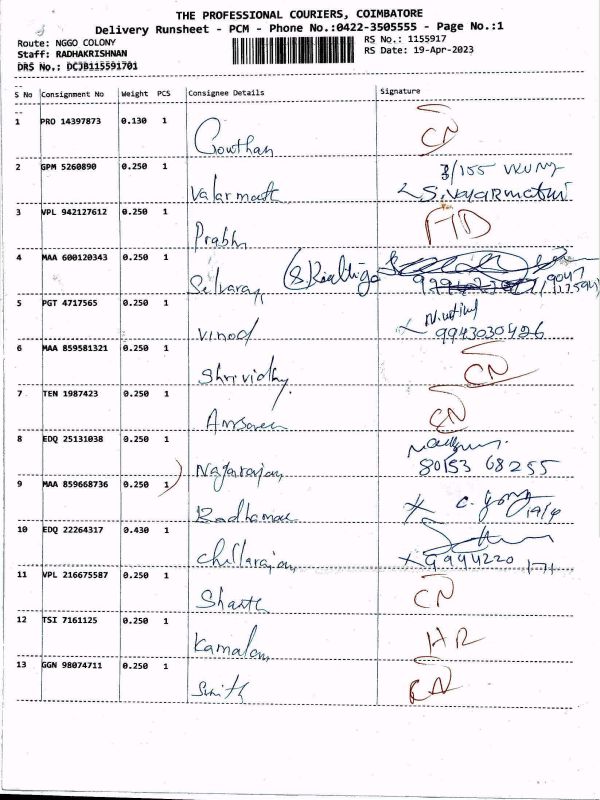 THE PROFESSIONAL COURIERS, COIMBATORE
Delivery Runsheet - PCM - Phone No.:0422-3505555 - Page No.:1
Route: NGGO COLONY RS No.: 1155917
Staff: RADHAKRISHNAN RS Date: 19-Apr-2023
DRS No.: DCJB115591701
S No Consignment No Weight PCS Consignee Details Signature
1 PRO 14397873 0.130 1 Gowthan CN
2 GPM 5260890 0.250 1 Valarmath S.Valarmathi
3 VPL 942127612 0.250 1 Prabhu
4 MAA 600120343 0.250 1 Selvaraj
5 PGT 4717565 0.250 1 Vinod 9943030426
6 MAA 859581321 0.250 1 Shrividhy CN
7 TEN 1987423 0.250 1 CN
8 EDQ 25131038 0.250 1 Nagarajan 80153 68255
9 MAA 859668736 0.250 1 Radhamae 19/4
10 EDQ 22264317 0.430 1 Chellarajan 9994220 171
11 VPL 216675587 0.250 1 Shanth CN
12 TSI 7161125 0.250 1 Kamalam HR
13 GGN 98074711 0.250 1 Smith